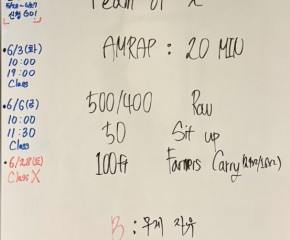 Team of 2
5/20-6/27
신청 GO!
•6/3(화)
10:00
19:00
Class
•6/6(금)
10:00
11:30
Class
•6/28(토)
Class X
AMRAP : 20 MIN
500/400 Row
50 Sit up
100ft Farmers Carry
B : 무게 자유